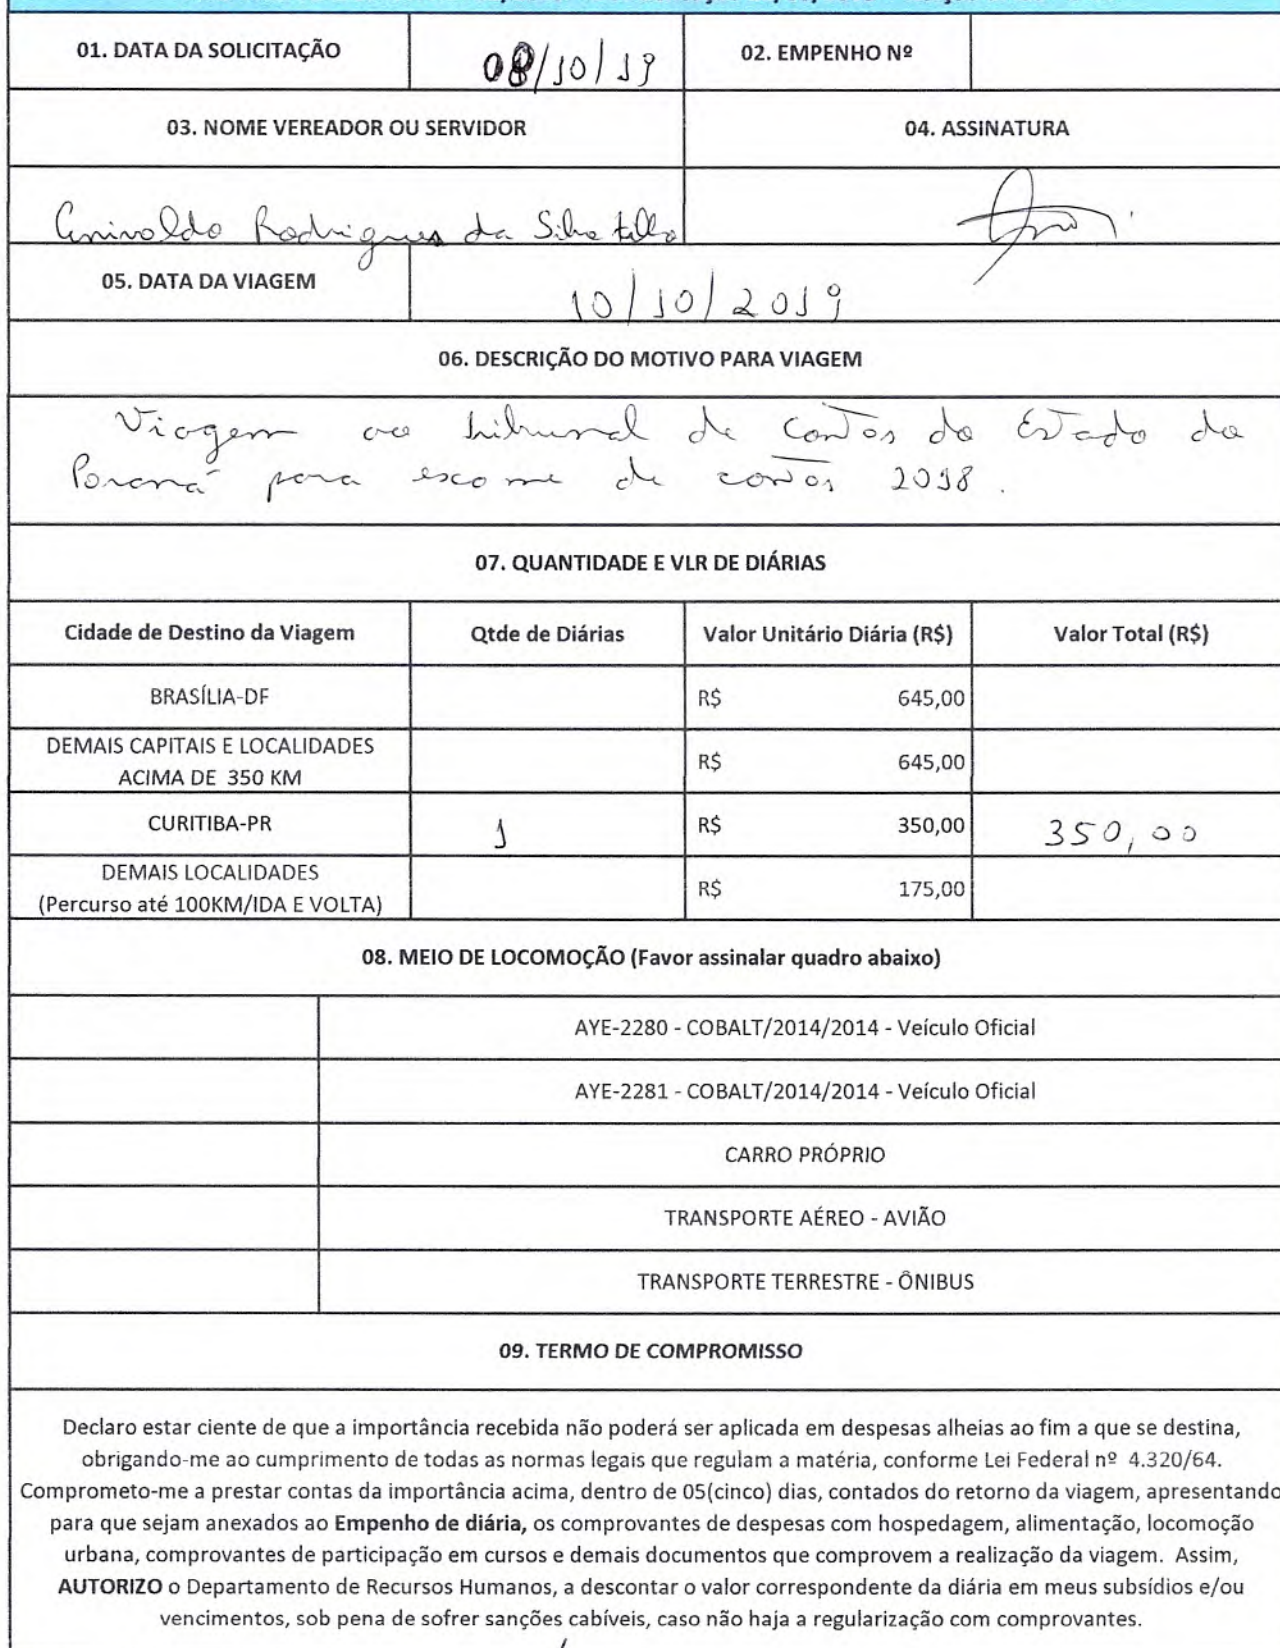 01. DATA DA SOLICITAÇÃO
08/10/19
02. EMPENHO Nº
03. NOME VEREADOR OU SERVIDOR
04. ASSINATURA
Rodrigues da Silva Filho
05. DATA DA VIAGEM
10/10/2019
06. DESCRIÇÃO DO MOTIVO PARA VIAGEM
Viagem ao tribunal de contas do Estado do
Paraná para exame de contas 2018.
07. QUANTIDADE E VLR DE DIÁRIAS
Cidade de Destino da Viagem Qtde de Diárias Valor Unitário Diária (R$) Valor Total (R$)
BRASÍLIA-DF R$ 645,00
DEMAIS CAPITAIS E LOCALIDADES
ACIMA DE 350 KM
R$ 645,00
CURITIBA-PR 1 R$ 350,00 350,00
DEMAIS LOCALIDADES
(Percurso até 100KM/IDA E VOLTA)
R$ 175,00
08. MEIO DE LOCOMOÇÃO (Favor assinalar quadro abaixo)
AYE-2280 - COBALT/2014/2014 - Veículo Oficial
AYE-2281 - COBALT/2014/2014 - Veículo Oficial
CARRO PRÓPRIO
TRANSPORTE AÉREO - AVIÃO
TRANSPORTE TERRESTRE - ÔNIBUS
09. TERMO DE COMPROMISSO
Declaro estar ciente de que a importância recebida não poderá ser aplicada em despesas alheias ao fim a que se destina,
obrigando-me ao cumprimento de todas as normas legais que regulam a matéria, conforme Lei Federal nº 4.320/64.
Comprometo-me a prestar contas da importância acima, dentro de 05(cinco) dias, contados do retorno da viagem, apresentando
para que sejam anexados ao Empenho de diária, os comprovantes de despesas com hospedagem, alimentação, locomoção
urbana, comprovantes de participação em cursos e demais documentos que comprovem a realização da viagem. Assim,
AUTORIZO o Departamento de Recursos Humanos, a descontar o valor correspondente da diária em meus subsídios e/ou
vencimentos, sob pena de sofrer sanções cabíveis, caso não haja a regularização com comprovantes.